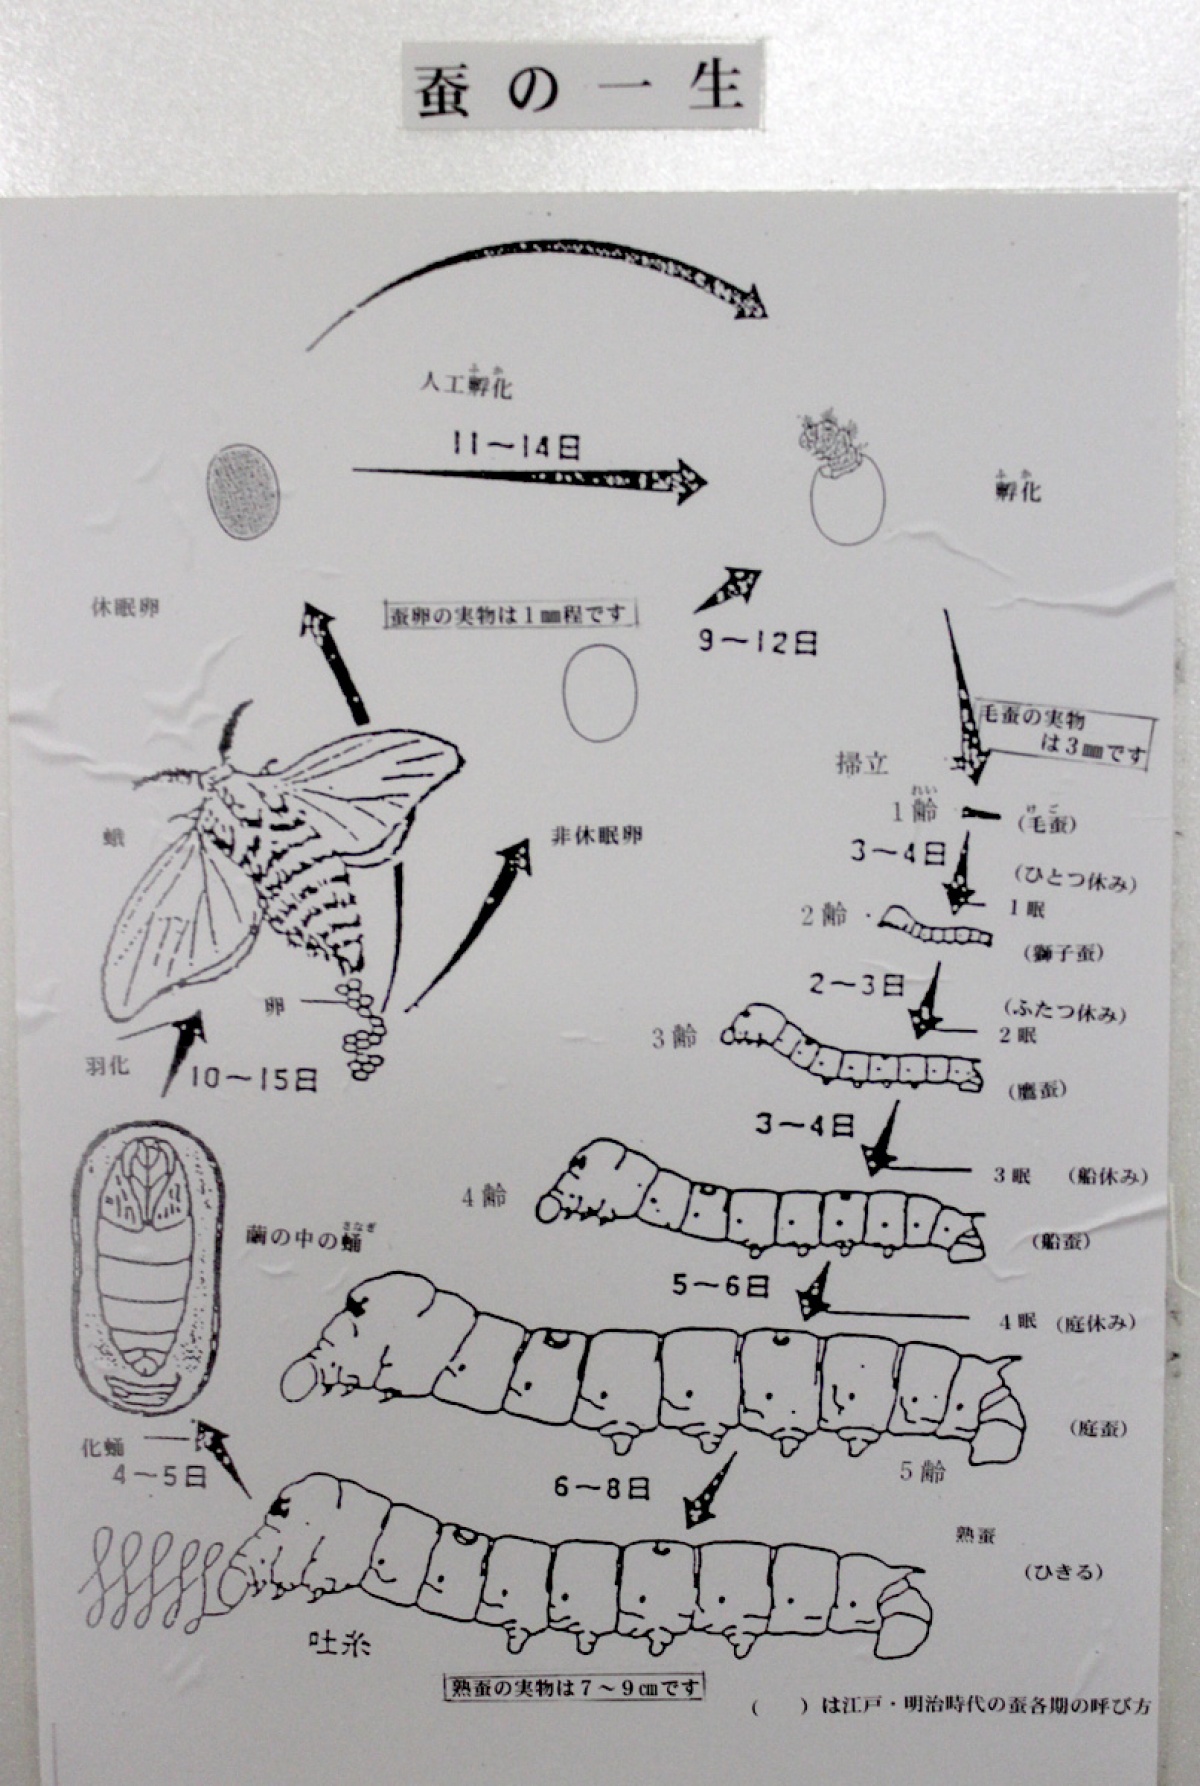 蚕の一生
ふか
人工孵化
11〜14日
ふか
孵化
休眠卵
蚕卵の実物は1㎜程です
9〜12日
毛蚕の実物
は3㎜です
掃立
れい
1齢
けご
(毛蚕)
蛾
非休眠卵
3〜4日
(ひとつ休み)
1眠
2齢
(獅子蚕)
2〜3日
(ふたつ休み)
2眠
卵
3齢
羽化
10〜15日
(鷹蚕)
3〜4日
3眠
(船休み)
4齢
さなぎ
繭の中の蛹
(船蚕)
5〜6日
4眠
(庭休み)
(庭蚕)
化蛹
4〜5日
5齢
6〜8日
熟蚕
(ひきる)
吐糸
熟蚕の実物は7〜9㎝です
(　)は江戸・明治時代の蚕各期の呼び方